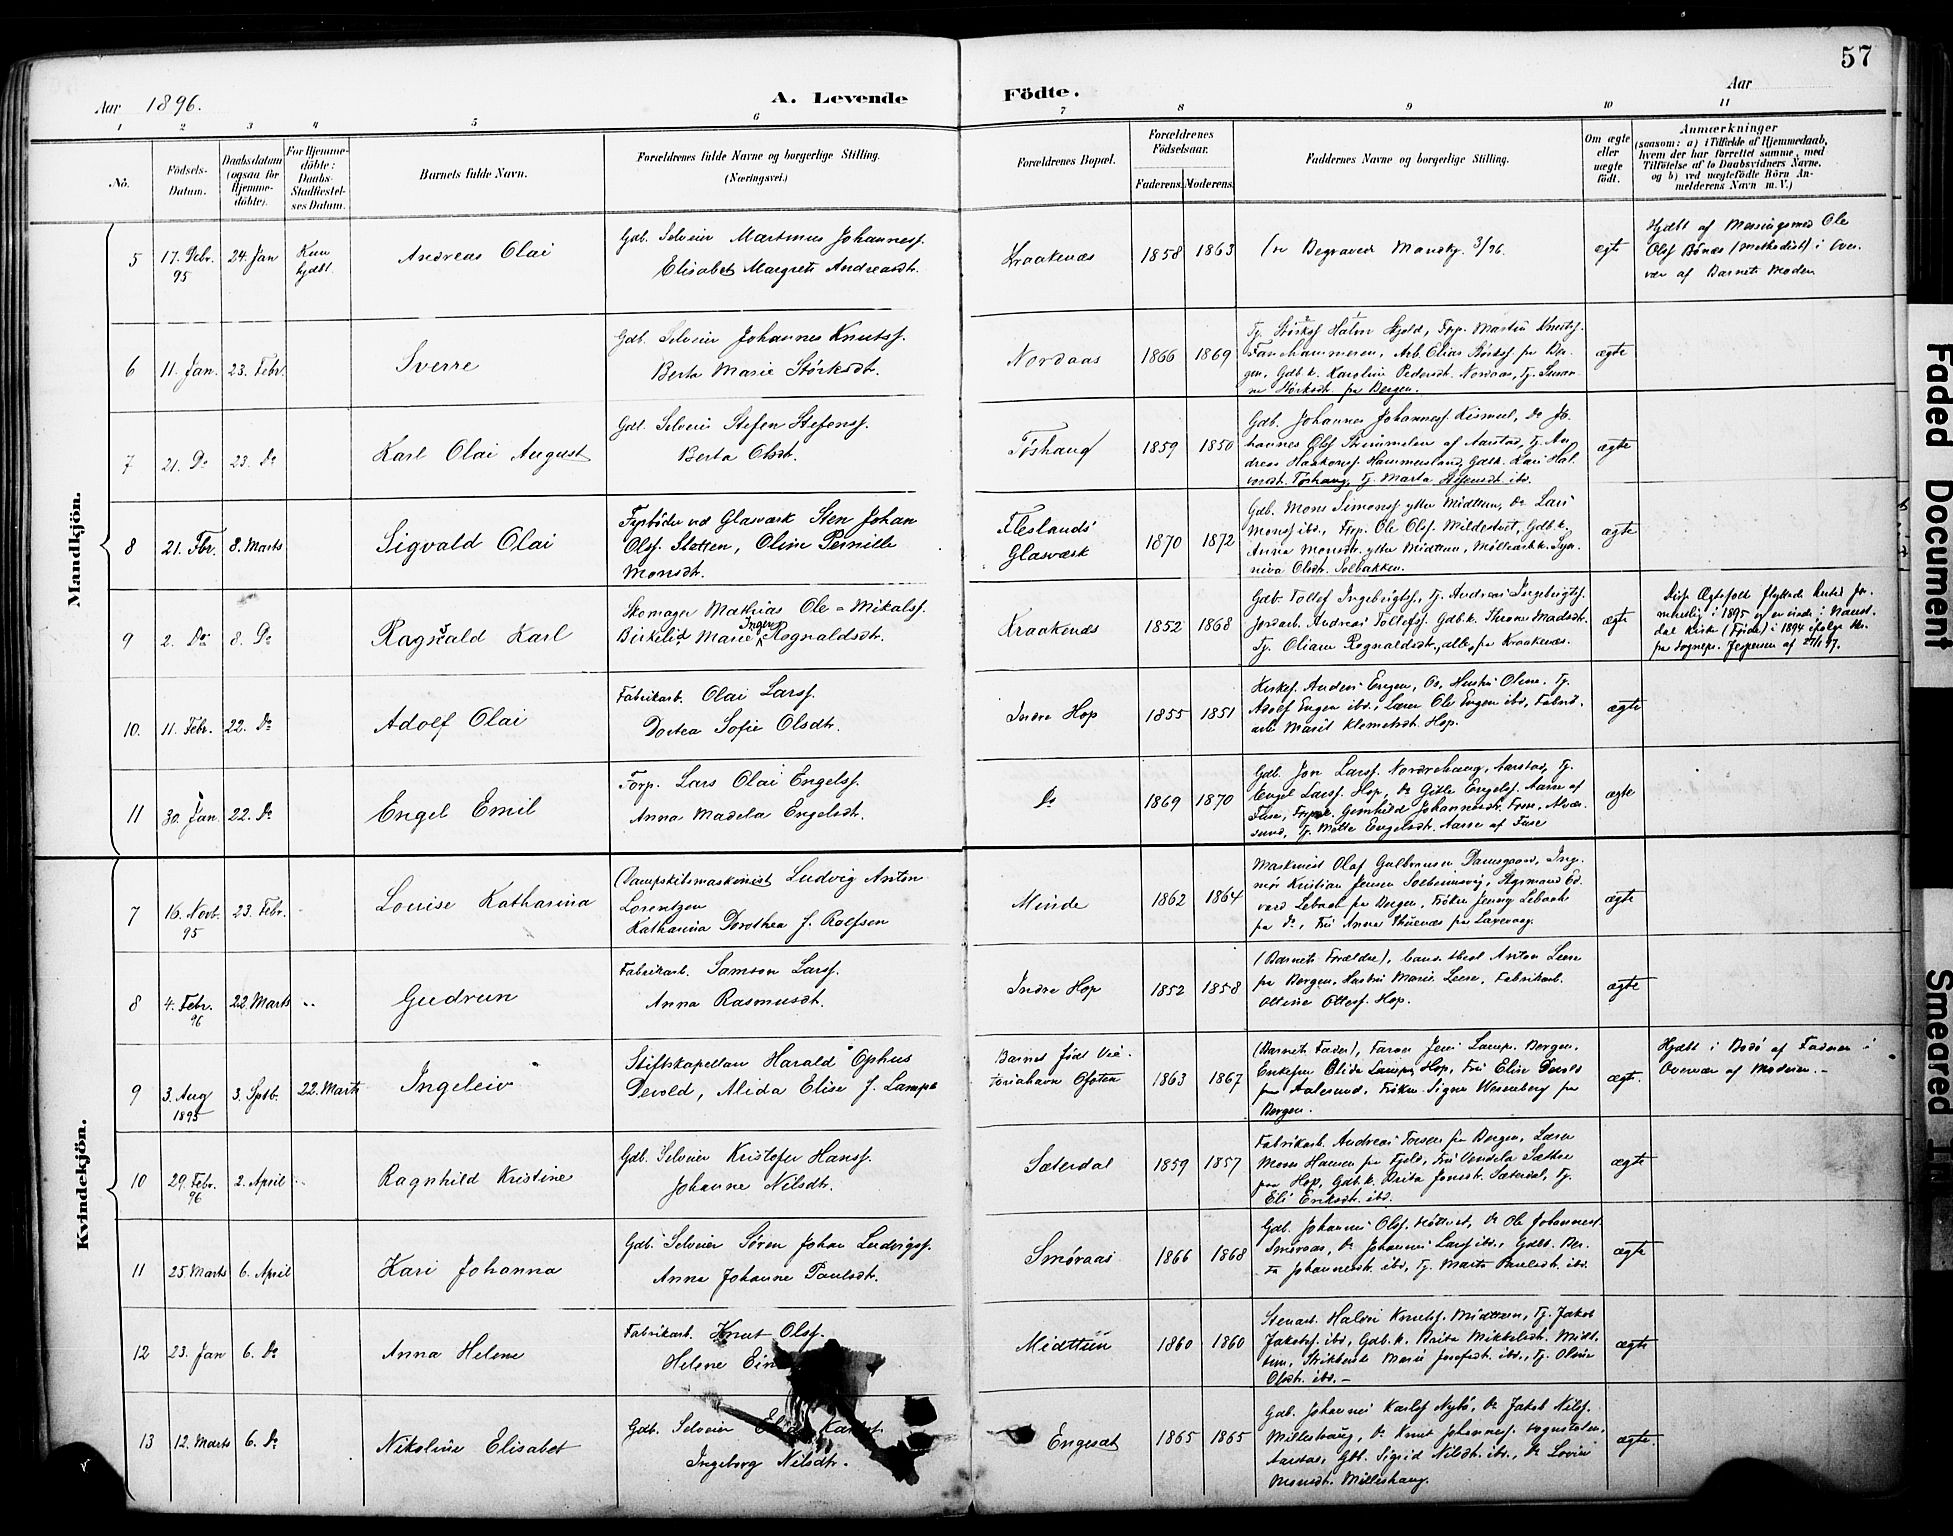 57
Aar 1896.
A. Levende Födte.
Aar
1 2 3 4 5 6 7 8 9 10 11
No.
Födsels-
Datum.
Daabsdatum
(ogsaa for
Hjemme-
döbte).
For Hjemme-
döbte:
Daabs-
Stadfæstel-
ses Datum.
Barnets fulde Navn.
Forældrenes fulde Navne og borgerlige Stilling.
(Næringsvei.)
Forældrenes Bopæl.
Forældrenes
Födselsaar.
Faderens. Moderens.
Faddernes Navne og borgerlige Stilling.
Om ægte
eller
uægte
født.
Anmærkninger
(saasom: a) i Tilfælde af Hjemmedaab,
hvem der har forrettet samme, med
Tilföielse af to Daabsvidners Navne,
og b) ved uægtefödte Börn An-
melderens Navn m. V.)
Mandkjön.
5 17. Debr. 95 24. Jan Kun hjdbt. Andreas Olai
Gdb. Selveier Martinus Johannesf.
Elisabet Margrete Andreasdt.
Kraakenæs 1858 1863
Begravet 3/96.
ægte
Hjdbt af Ole
Olsf Bönes (methodist) i Over-
vær af Barnets Moder
6 11. Jan. 23. Febr. Sverre
Gdb. Selveier Johannes Knutsf.
Berta Marie Störksdt.
Nordaas 1866 1869
Tj. Störksf Halvor Skjold, Frp. Martin Knutsf.
Fanehammeren, Arb. Olias Störksf. fra Ber-
gen, Gdb.k. Karoline Pedersdt. Nordaas, Tj. Susan-
ne Störksdt. fra Bergen.
ægte
7 21. Do 23. Do Karl Olai August
Gdb. Selveier Stefen Stefensf.
Berta Olsdt.
Töshaug 1859 1850
Gdb. Johannes Johannesf Kismul, Do Jo-
hannes Olsf af Aarstad, Tj. An-
dreas Haakonsf. Hammersland, Gdbk. Kari Hal-
vorsdt. Töshaug, Tj. Marta Stefensdt ibd.
ægte
8 21. Fbr. 8. Marts Sigvald Olai
ved Glasværk Sten Johan
Olsf. Sletten, Oline Pernille
Monsdt.
Fleslands
Glasværk
1870 1872
Gdb. Mons Simonsf ytter Midttun, Do Lars
Monsf ibd, Frp. Ole Olsf. Mildestvet, Gdb.k.
Anna Monsdt. ytter Midttun, Syn-
neva Olsdt. Solbakken.
ægte
9 2. Do 8. Do Ragnvald Karl
Skomager Mathias Ole = Mikalsf.
Birkelid Marie Inger Rognaldsdt.
Kraakenæs 1852 1868
Gdb. Tollef Ingebrigtsf, Tj. Andreas Ingebrigtsf,
Jordarb. Andreas Tollefsf. Gdb.k. Madsdt.
Tj. Oliane Rognaldsdt., alle fra Kraakenæs.
ægte
Disse Ægtefolk flyttede hertil fra
i 1895 og er viede i Naust-
dal Kirke (Förde) i 1894 ifölge Br.
fra Sognepr. Jespersen af
10. 11. Febr. 22. Do Adolf Olai
Fabrikarb. Olai Larsf.
Dortea Sofie Olsdt.
Indre Hop 1855 1851
Kirkes. Anders Engen, Os, Hustru Oline. Tj.
Adolf Engen ibd., Lærer Ole Engen ibd, Fabrik-
arb Marit Klemetsdt. Hop.
ægte
11 30. Jan. 22. Do Engel Emil
Forp. Lars Olai Engelsf.
Anna Madela Engelsdt.
Do 1869 1870
Gdb. Jon Larsf. Nordrehaug, Aarstad, Tj.
Engel Larsf. Hop, Do Gitle Engelsf. Aasse af
Fuse, Gunhild Johannesdt.
Tj. Mette Engelsdt. Aasse af Fuse
ægte
Kvindekjön.
7 16. Novb. 95 23. Febr. Louise Katharina
Dampskibsmaskinist Ludvig Anton
Lorentzen
Katharina Dorothea f. Rolfsen
Minde 1862 1864
Maskinist Olaf Gulbransen Damsgaard, Ing-
niör Kristian Jensen Solheimsvig, Styrmand Ed-
vard Lebach fra Bergen, Fröken Jenny Lebach
fra do, Fru Anna fra Laxevaag.
ægte
8 4. Febr. 96 22. Marts Gudrun
Fabrikarb. Samson Larsf.
Anna Rasmusdt.
Indre Hop 1852 1858
(Barnets Forældre), Cand. theol Anton
fra Bergen, Hustru Marie Fabrikarb.
Ottine Ottesf. Hop.
ægte
9 3. Aug 1895 3. Sptb. 22. Marts Ingeleiv
Stiftskapellan Harald Ophus
Devold, Alida Elise f. Lampe
Barnet födt Vic-
toriahavn Ofoten
1863 1867
(Barnets Fader), Farver Jens Lampe Bergen,
Enkefru Elida Lampe, Hop, Fru Elise Devold
fra Aalesund, Fröken Signe Wesenberg fra
Bergen.
ægte.
Hjdbt i Bodö af Faderen i
Overvær af Moderen. –
10 29. Febr. 96 2. April Ragnhild Kristine
Gdb. Selveier Kristofer Hansf.
Johanne Nilsdt.
Sæterdal 1859 1857
Fabrikarb. Andreas Torsen fra Bergen, Lærer
Mons Hansen fra Fjeld, Fru Vendela Sætter
paa Hop, Gdb.k. Brita Jonsdt Sæterdal, Tj.
Eli Eriksdt. ibd.
ægte
11 25. Marts 6. April Kari Johanna
Gdb. Selveier Sören Johan Ludvigsf.
Anna Johanne Paulsdt.
Smöraas 1866 1868
Gdb. Johannes Olsf. Do Ole Johannesf.
Smöraas, Do Johannes Larsf ibd, Gdbk. Ber-
ta Johannesdt. ibd, Tj. Marta Paulsdt. ibd.
ægte
12 23. Jan 6. Do Anna Helene
Fabrikarb. Knut Olsf.
Helene
Midttun 1860 1860
Stenarb. Halvor Knutsf. Midttun, Tj. Jakob
Jakobsf ibd, Gdb.k. Brita Mikkelsdt. Midt-
tun, Marie Josefsdt. ibd., Tj. Oline
Olsdt. ibd. –
ægte
13 12. Marts 6. Do Nikoline Elisabet
Gdb. Selveier
Ingeborg Nilsdt.
Engesæt 1865 1865
Gdb. Johannes Karlsf Nybö, Do Jakob Nilsf.
Milleshaug, Do Knut Johannesf. Vognstölen,
Aarstad, Gdb. Sigrid Nilsdt. ibd., Do Lovise
Monsdt. Milleshaug.
ægte.
Faded Document
Smeared Ink